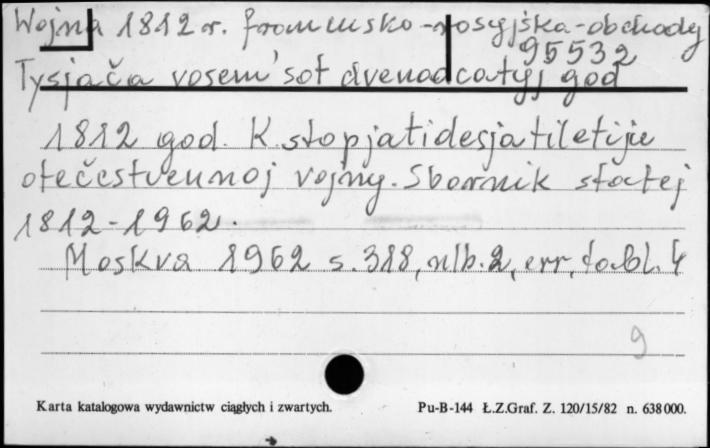 Wojna 1812 r. francusko-rosyjska-obchody
95532
Tysjača vosem'sot dvenadcatyj god
1812 god. K stopjatidesjatiletiju
otečestvennoj vojny. Sbornik statej
1812-1962.
Moskva 1962 s. 318, nlb. 2, err, tabl. 4
9
Karta katalogowa wydawnictw ciągłych i zwartych.
Pu-B-144 Ł.Z.Graf. Z. 120/15/82 n. 638 000.